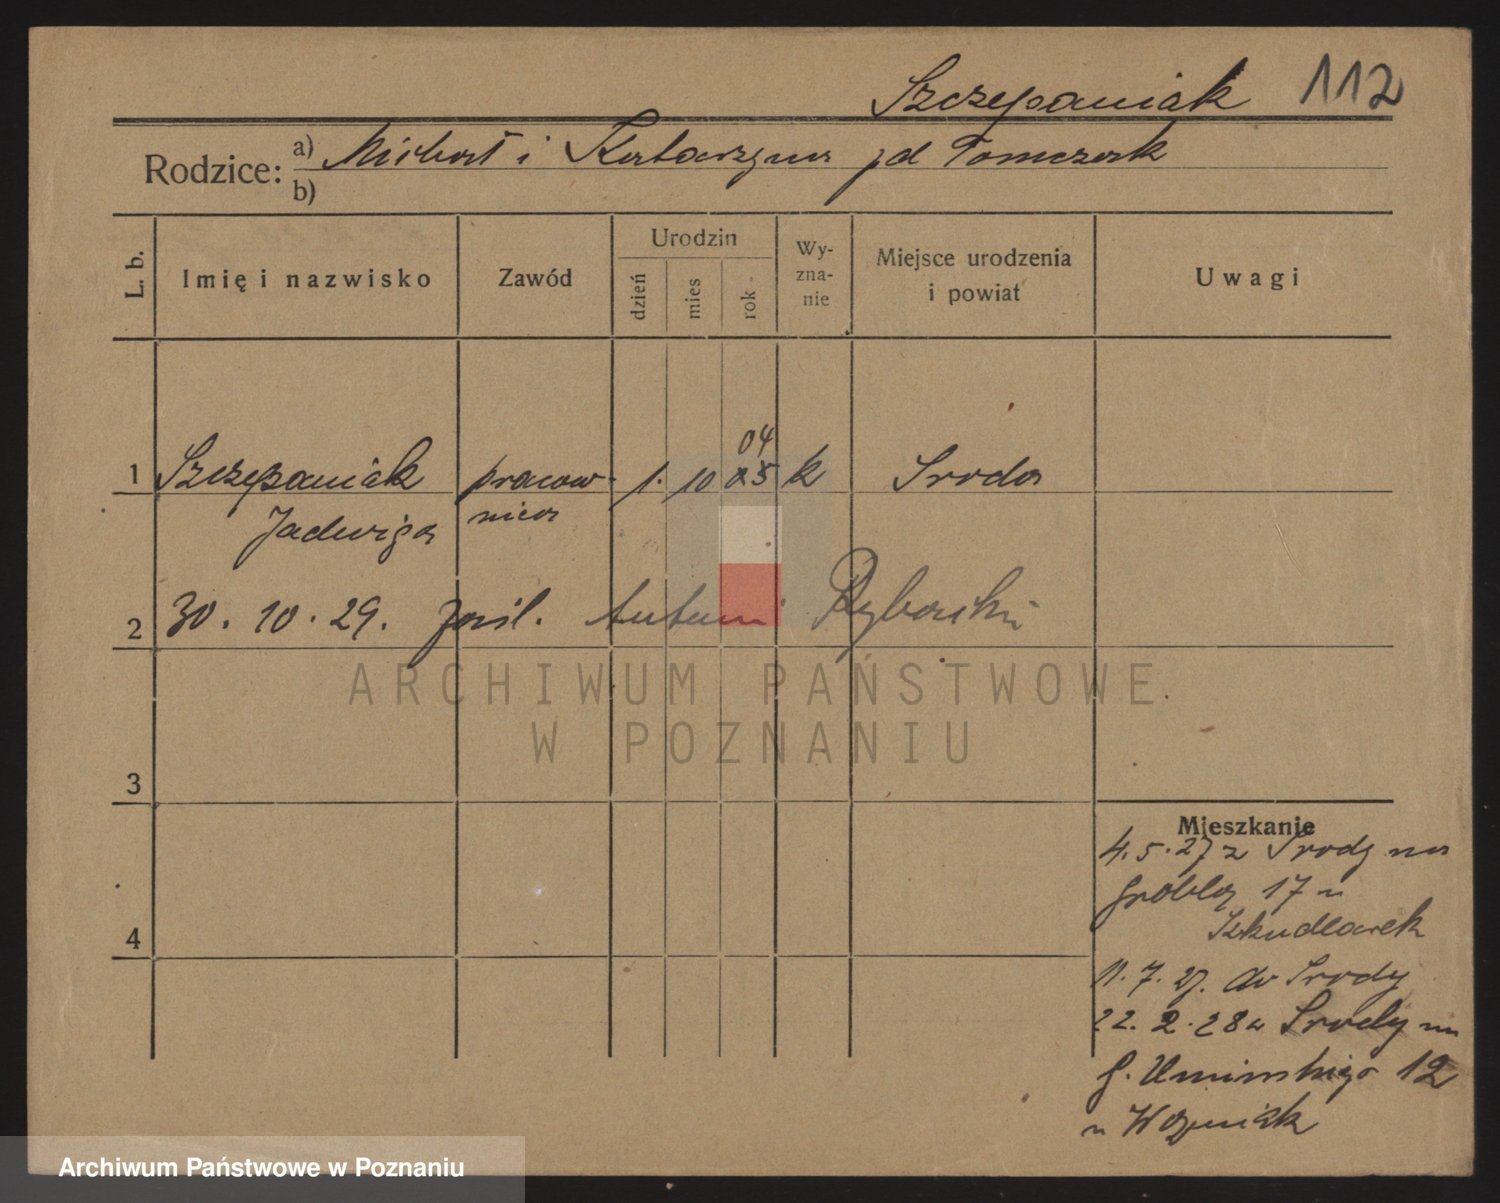 Szczepaniak 112
Rodzice: a) Michał i Katarzyna zd Tomczak
b)
L. b.
Imię i nazwisko
Zawód
Urodzin
dzień
mies
rok
Wy-
zna-
nie
Miejsce urodzenia
i powiat
Uwagi
04
1 Szczepaniak pracow- 1. 10 05 k Sroda
Jadwiga nica
2 30. 10. 29. zaśl. Antoni Rybarski
ARCHIWUM PAŃSTWOWE
W POZNANIU
3
Mieszkanie
4. 5. 27 z Srody na
Groblą 17 u
Szkudlarek
4
11. 7. 27. do Srody
22. 2. 28 z Srody na
G. Umińskiego 12
u Woźniak
Archiwum Państwowe w Poznaniu